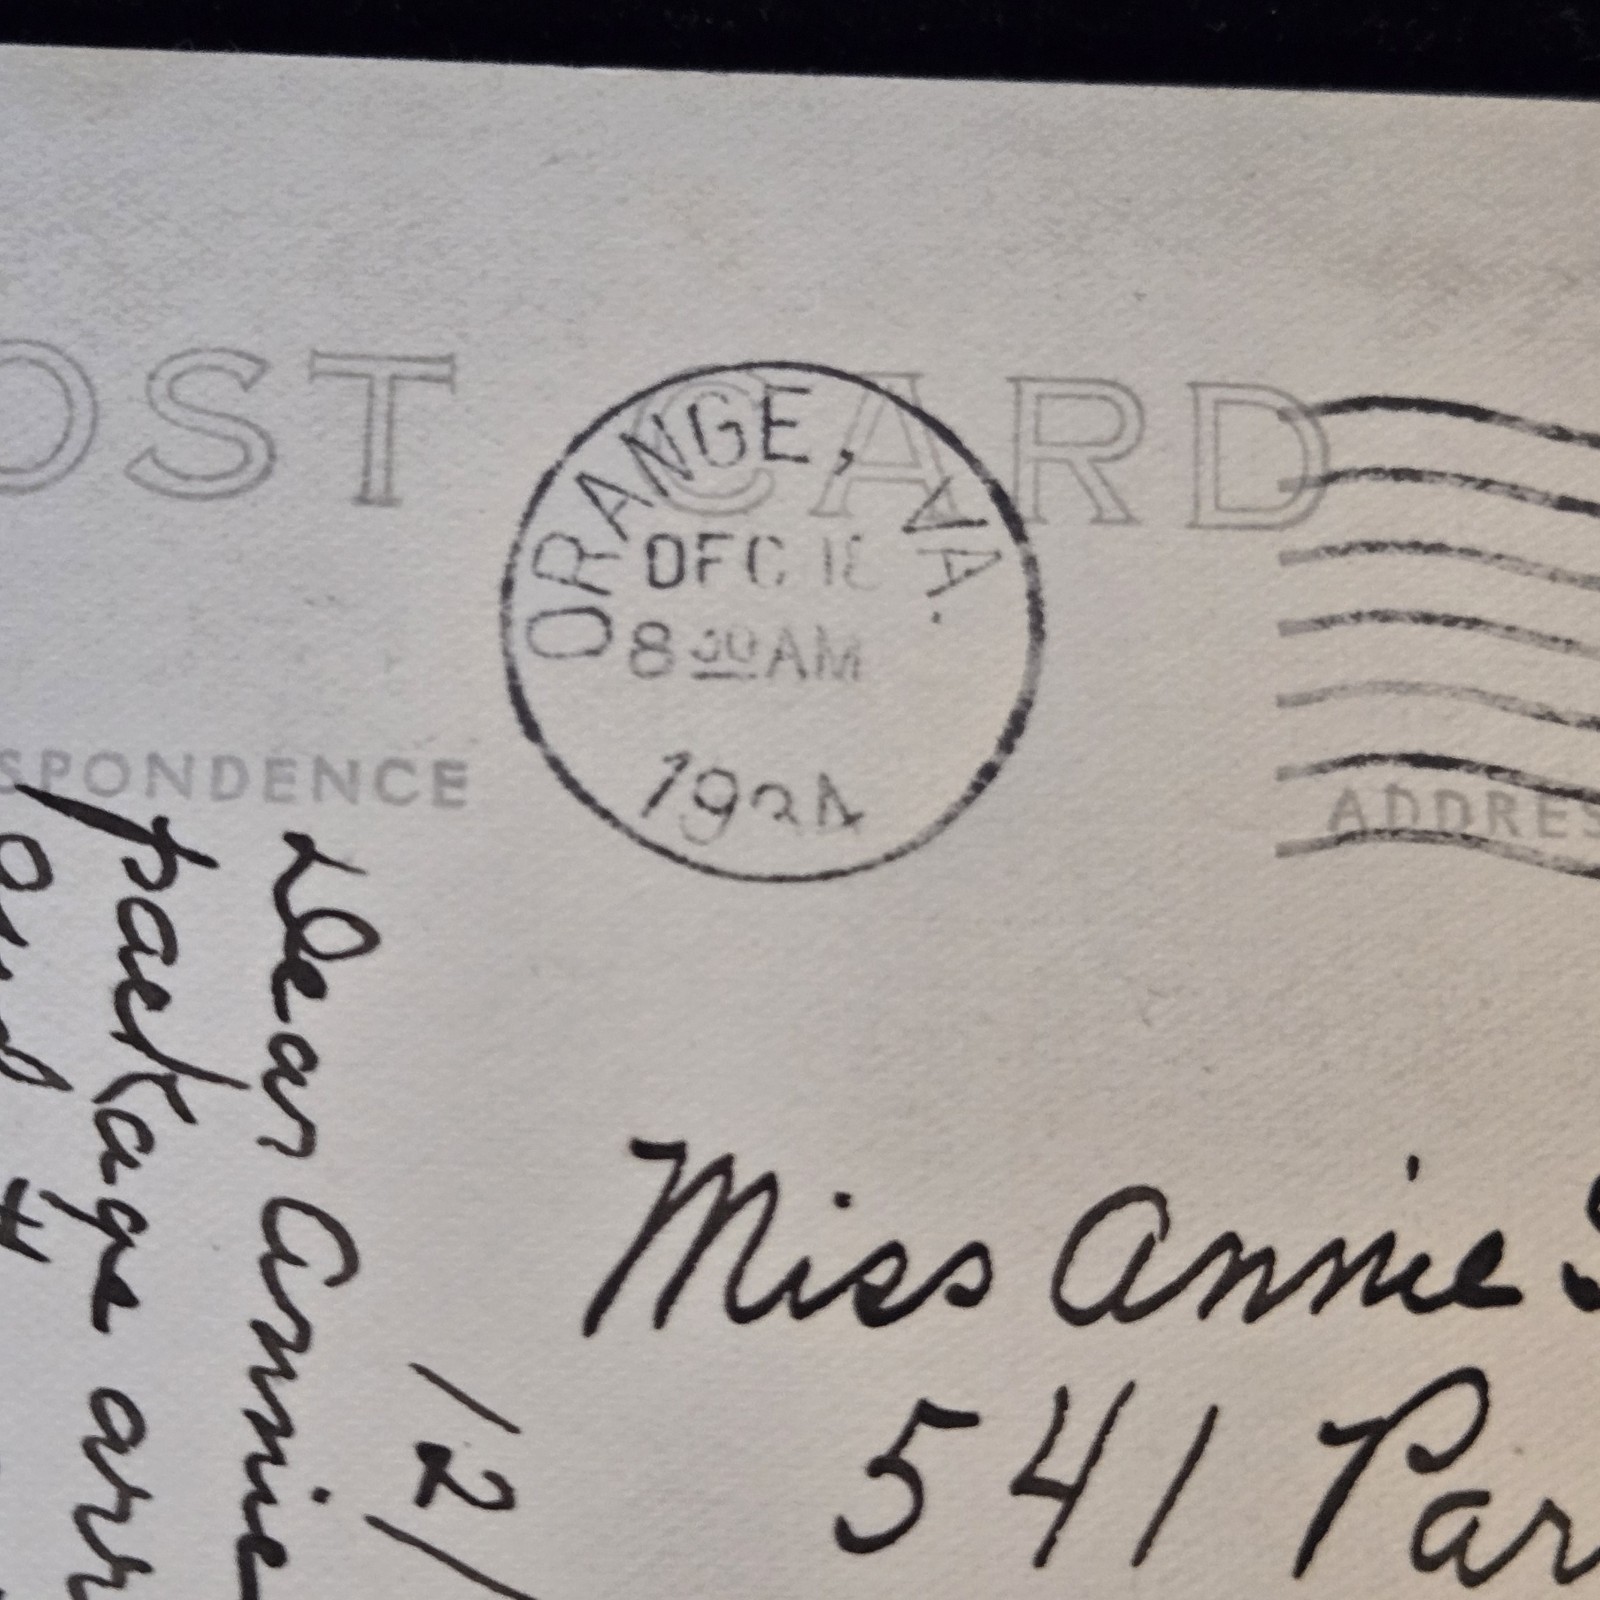 OST CARD
ORANGE, VA.
DEC 18
8 30 AM
19
SPONDENCE
ADDRES
Miss Annie
541 Par
12/
Dear Annie
package arr